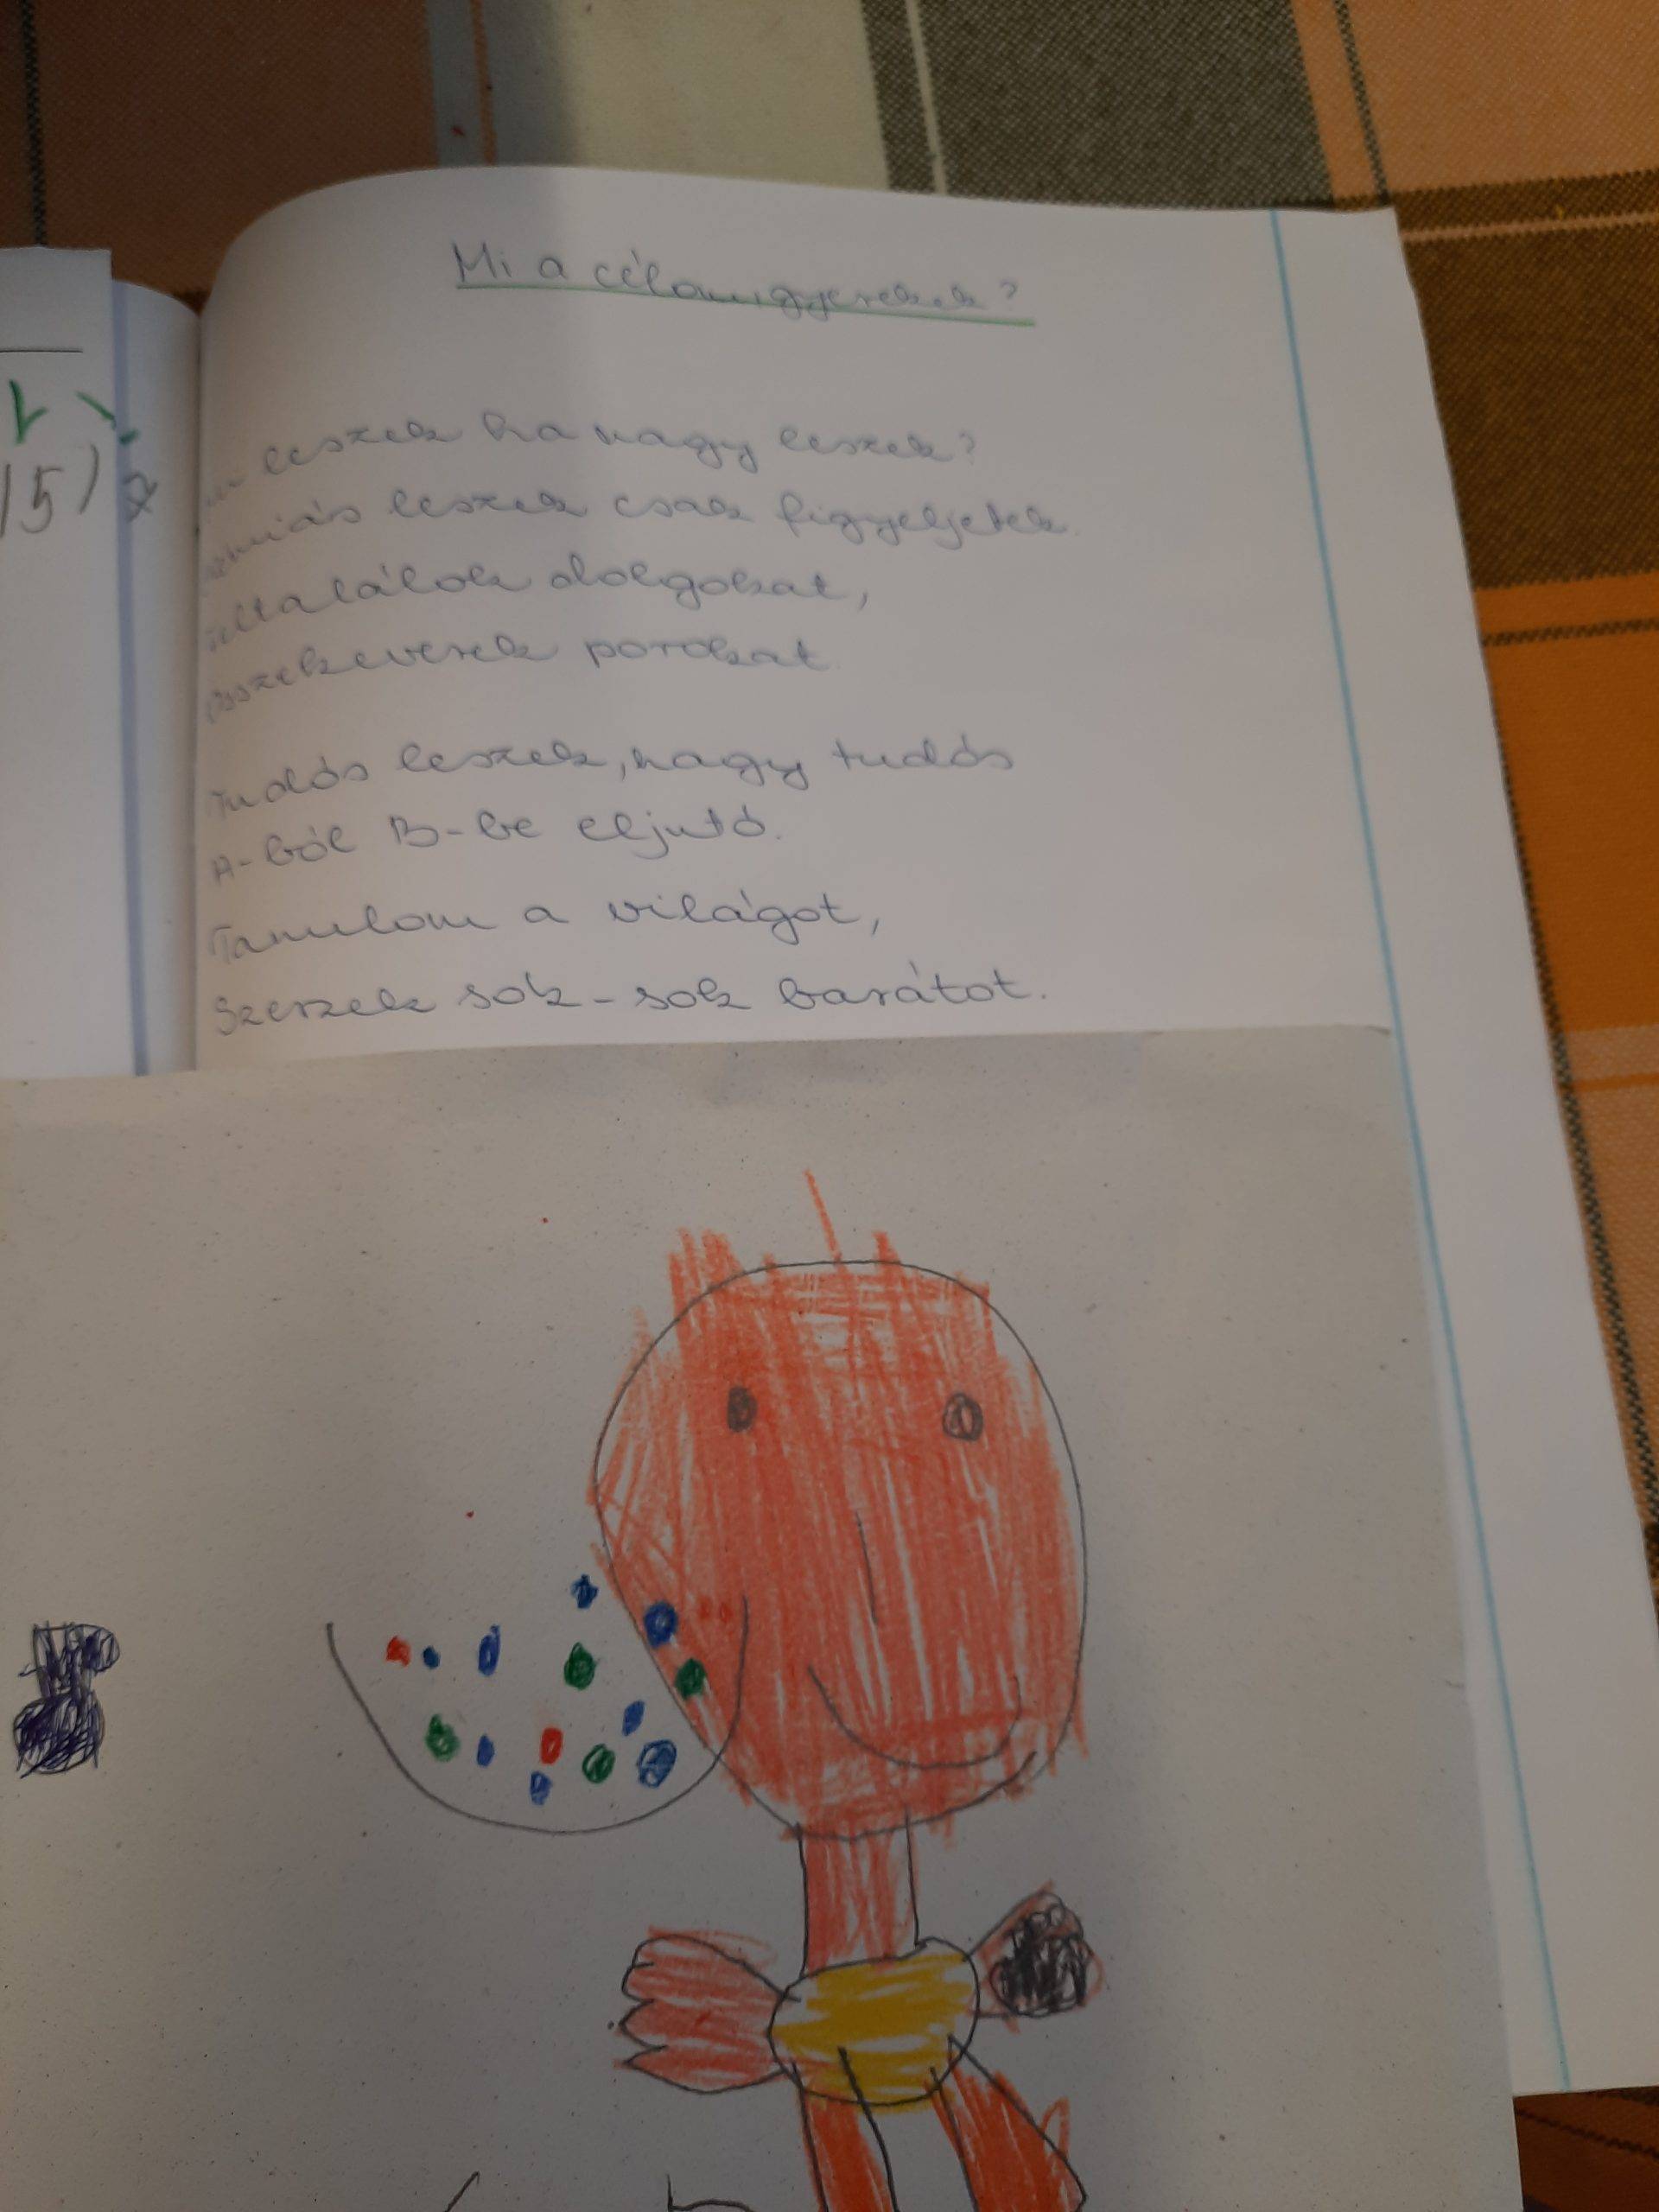 Mi a célom gyerekek?
leszek ha nagy leszek?
leszek csak figyeljetek.
feltalálok dolgokat,
összekeverek porokat.
Tudós leszek, nagy tudós
A-ból B-be eljutó.
Tanulom a világot,
Szerzek sok-sok barátot.
15)